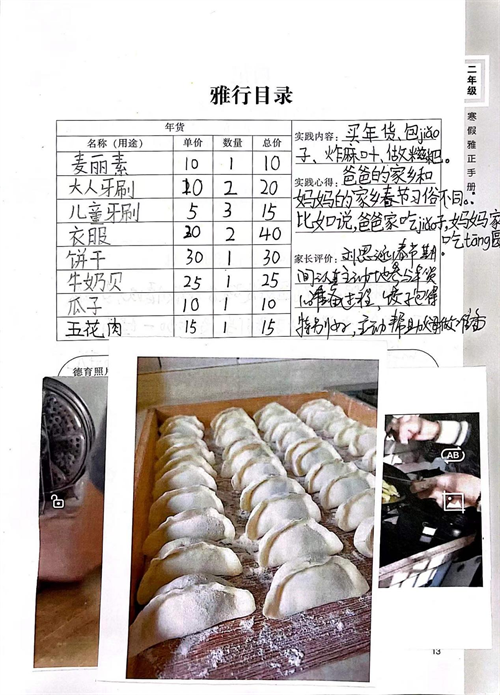 二年级
寒假雅正手册
雅行目录
年货
名称（用途） 单价 数量 总价
麦丽素 10 1 10
大人牙刷 10 2 20
儿童牙刷 5 3 15
衣服 20 2 40
饼干 30 1 30
牛奶贝 25 1 25
瓜子 10 1 10
五花肉 15 1 15
实践内容：买年货、包jiǎo
子、炸麻叶、做糍粑。
实践心得：爸爸的家乡和
妈妈的家乡春节习俗不同。
比如说，爸爸家吃jiǎo子，妈妈家
吃tāng圆
家长评价：刘思 春节期
间 主动地参与年货
准备过程，饺子包得
特别好，主动帮助 准备
德育照片
AB
13